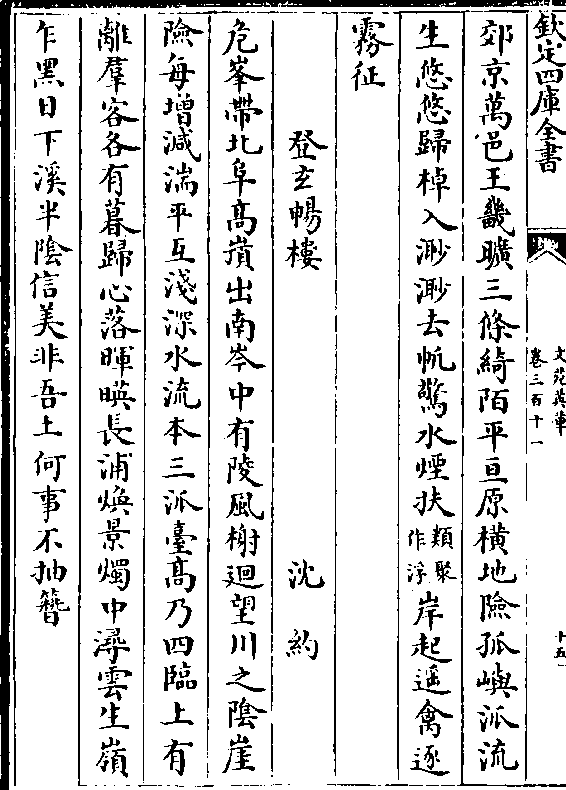 欽定四庫全書
文苑英華
卷三百十一
十五
郊京萬邑王畿曠三條綺陌平亘原橫地險孤嶼派流
生悠悠歸棹入渺渺去帆驚水煙扶類聚作浮岸起遥禽逐
霧征
登玄暢樓 沈約
危峯帶北阜高嵿出南岑中有陵風榭迴望川之隂崖
險每增減湍平互淺深水流本三派臺髙乃四臨上有
離羣客各有暮歸心落暉暎長浦煥景燭中潯雲生嶺
乍黑日下溪半隂信美非吾土何事不抽簮